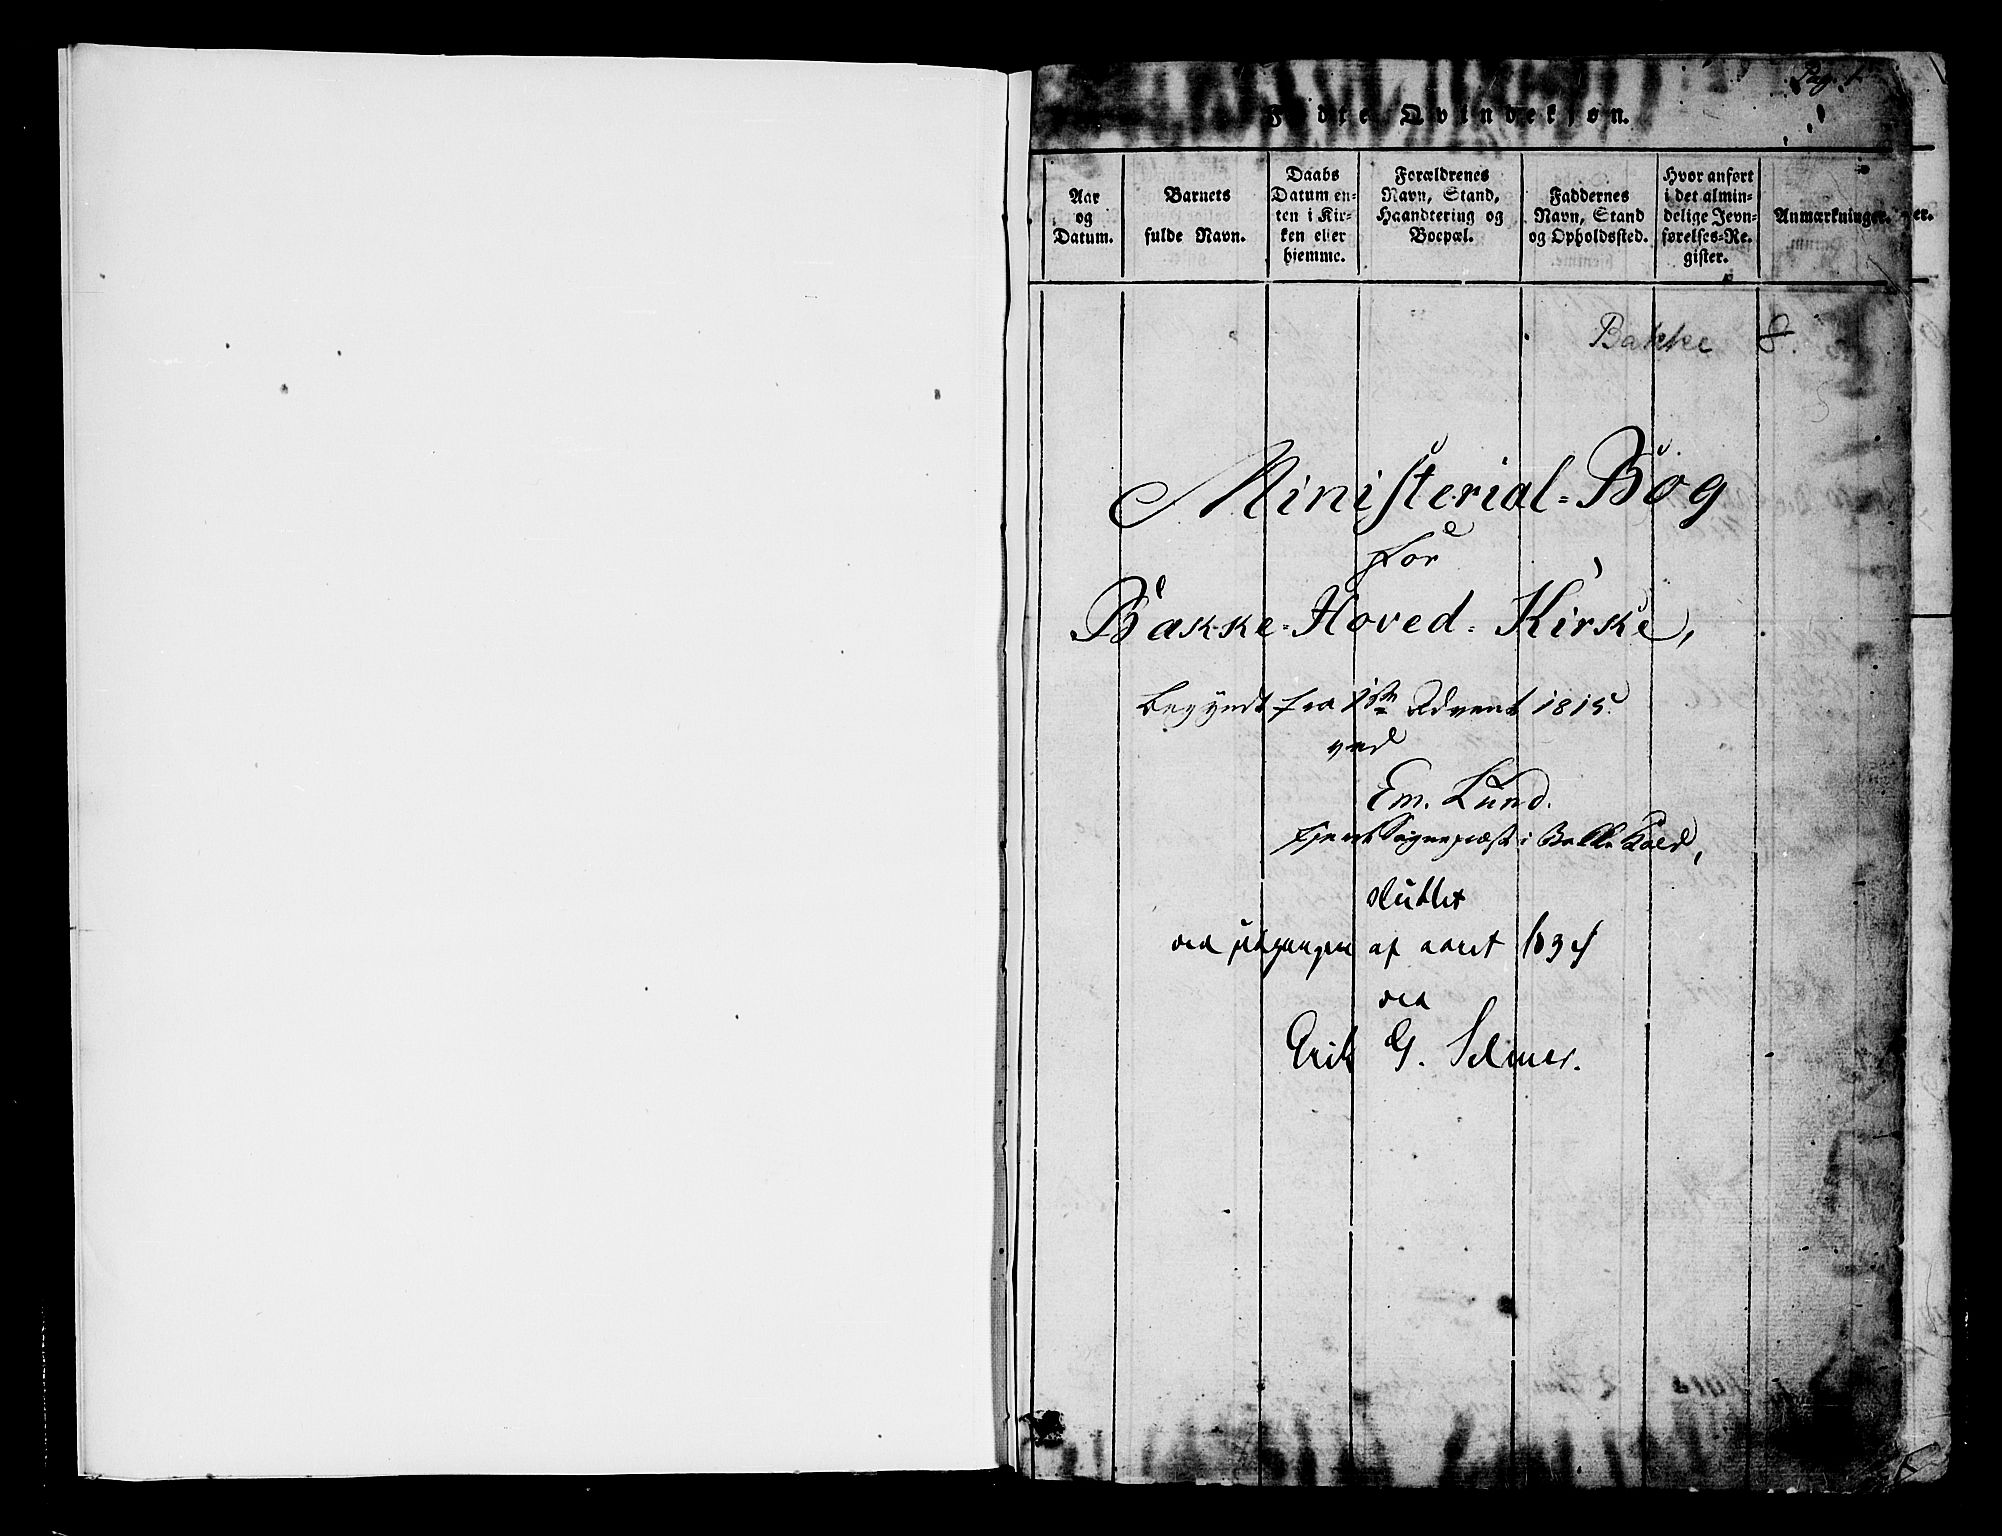 Pag. 1
Fødte Qvindekjøn.
Aar
og
Datum.
Barnets
fulde Navn.
Daabs
Datum en-
ten i Kir-
ken eller
hjemme.
Forældrenes
Navn, Stand,
Haandtering og
Boepæl.
Faddernes
Navn, Stand
og Opholdssted.
Hvor anført
i det almin-
delige Jevn-
førelses-Re-
gister.
Anmærkninger.
er.
Bakke 8.
Ministerial-Bog
for
Bakke-Hoved-Kirke,
begyndt fra 1ste Advent 1815
ved
Em. Lund.
Sognepræst i Bakke Kald,
sluttet
ved udgangen af aaret 1834
ved
Erik G. Selmer.